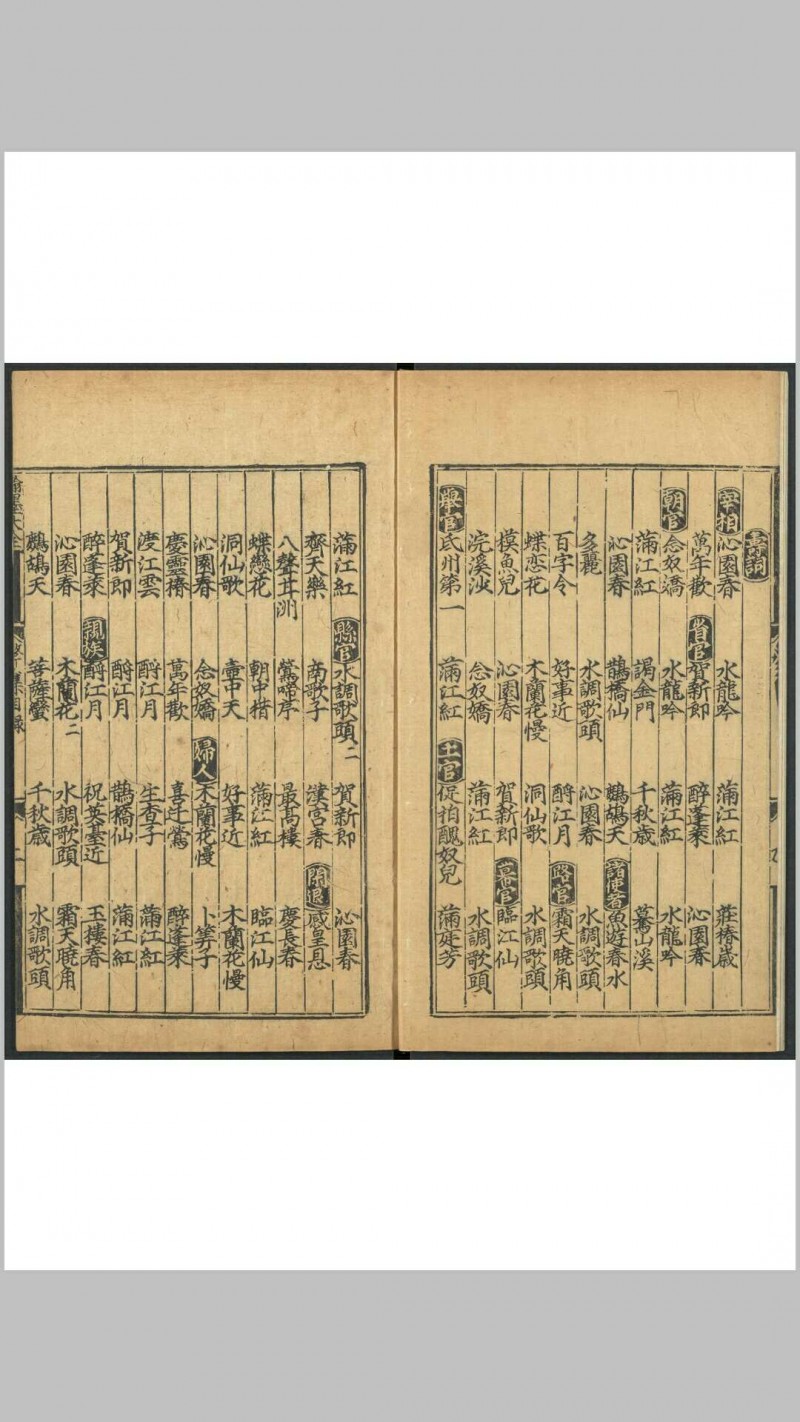 壽詞
宰相 沁園春 水龍吟 滿江紅 莊椿歲
萬年歡 省官 賀新郎 醉蓬萊 沁園春
朝官 念奴嬌 水龍吟 滿江紅 水龍吟
滿江紅 謁金門 千秋歲 驀山溪
沁園春 鵲橋仙 鷓鴣天 諸使者 魚遊春水
多麗 水調歌頭 沁園春 水調歌頭
百字令 好事近 酹江月 路官 霜天曉角
蝶恋花 木蘭花慢 洞仙歌 水調歌頭
摸魚兒 沁園春 賀新郎 幕官 臨江仙
浣溪沙 念奴嬌 滿江紅 水調歌頭
舉官 氐州第一 滿江紅 土官 促拍醜奴兒 滿庭芳
滿江紅 縣官 水調歌頭二 賀新郎 沁園春
齊天樂 南歌子 漢宮春 閑退 感皇恩
八聲甘洲 鶯啼序 最高樓 慶長春
蝶戀花 朝中措 滿江紅 臨江仙
洞仙歌 壷中天 好事近 木蘭花慢
沁園春 念奴嬌 婦人 木蘭花慢 卜筭子
慶靈椿 萬年歡 喜迁鶯 醉蓬萊
渡江雲 酹江月 生查子 滿江紅
賀新郎 酹江月 鵲橋仙 滿江紅
醉蓬萊 親族 酹江月 祝英臺近 玉樓春
沁園春 木蘭花二 水調歌頭 霜天曉角
鷓鴣天 菩薩蠻 千秋歲 水調歌頭
翰墨大全